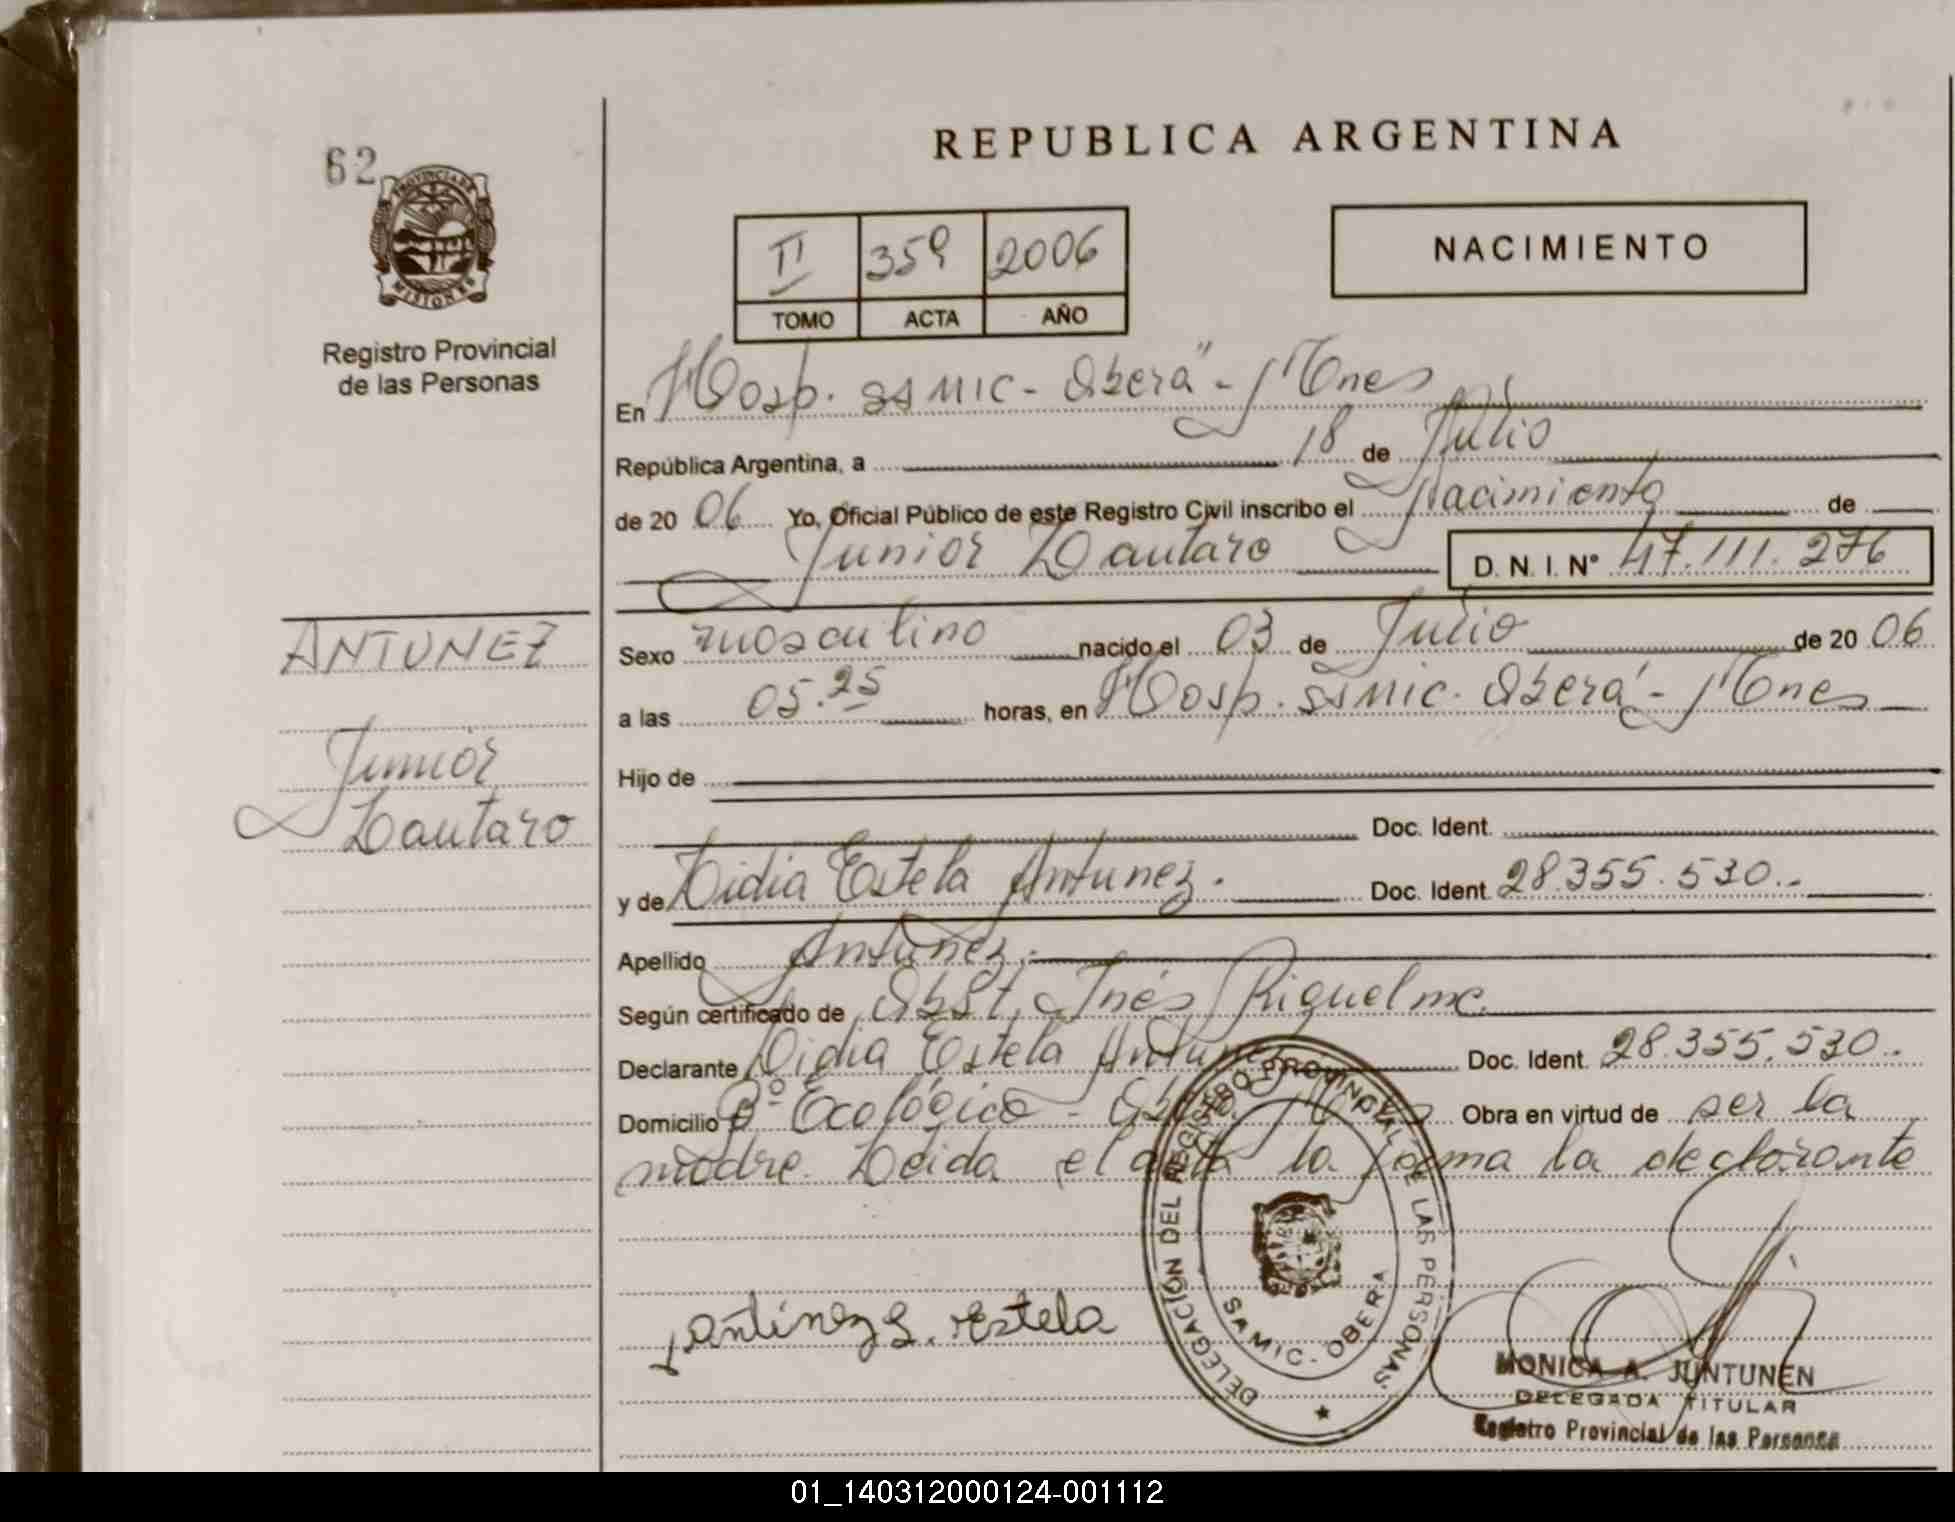 62
PROVINCIA DE
MISIONES
Registro Provincial
de las Personas
REPUBLICA ARGENTINA
II 359 2006
TOMO ACTA AÑO
NACIMIENTO
En Hosp. SAMIC - Oberá - Mnes
República Argentina, a 18 de Julio
de 20 06 Yo, Oficial Público de este Registro Civil inscribo el Nacimiento de
Junior Lautaro D. N. I. N° 47.111.276
ANTUNEZ
Junior
Lautaro
Sexo masculino nacido el 03 de Julio de 20 06
a las 05.25 horas, en Hosp. SAMIC. Oberá - Mnes
Hijo de
Doc. Ident.
y de Lidia Estela Antunez. Doc. Ident. 28.355.530.-
Apellido Antunez.
Según certificado de Obst. Inés Riquelme.
Declarante Lidia Estela Antunez Doc. Ident. 28.355.530.-
Domicilio B° Ecológico - Oberá Mnes Obra en virtud de ser la
madre. Leida el acta la firma la declarante
Antinez L. Estela
DELEGACIÓN DEL REGISTRO PROVINCIAL DE LAS PERSONAS
SAMIC - OBERA
MONICA A. JUNTUNEN
DELEGADA TITULAR
Registro Provincial de las Personas
01_140312000124-001112